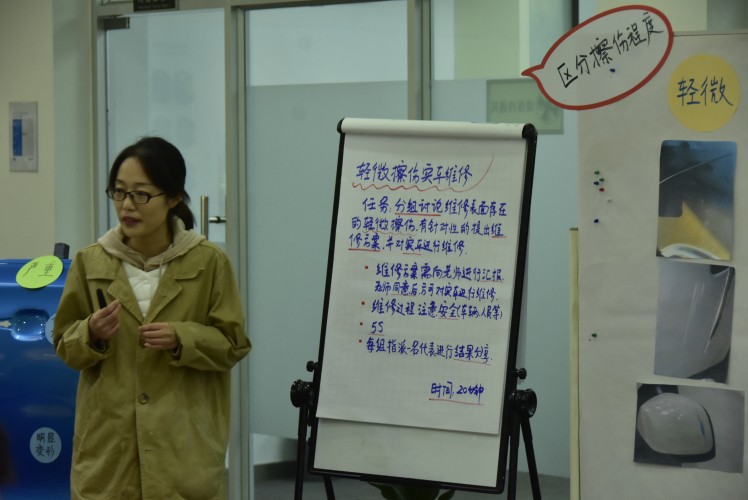 区分擦伤程度
轻微
轻微擦伤实车维修
任务:分组讨论维修表面存在
的轻微擦伤,有针对性的提出维
修方案,并对实车进行维修.
维修方案需向老师进行汇报,
老师同意后方可对实车进行维修.
维修过程注意安全(车辆、人员等)
5S
每组指派一名代表进行结果分享.
时间:20分钟
严重
明显
变形